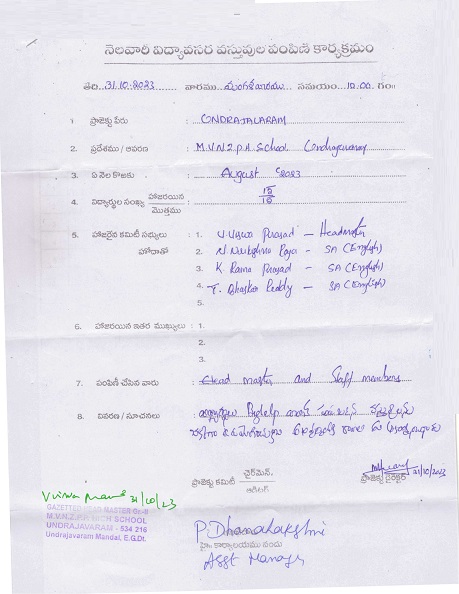 నెలవారి విద్యావసర వస్తువుల పంపిణీ కార్యక్రమం
తెది. 31.10.2023 వారము మంగళవారము సమయం 10.00 గం॥
1 ప్రాజెక్టు పేరు : UNDRAJAVARAM
2. ప్రదేశము / ఆవరణ : M.V.N.Z.P.H. School Undrajavaram
3. ఏ నెల కొఱకు : August 2023
4. విద్యార్ధుల సంఖ్య హాజరయిన / మొత్తము :
5. హాజరైన కమిటీ సభ్యులు : 1. Prasad - Headmaster
హోదాతో 2. Raja - SA (English)
3. K. Rama Prasad - SA (English)
4. Bhaskar Reddy - SA (English)
5.
6. హాజరయిన ఇతర ముఖ్యులు : 1.
2.
3.
7. పంపిణీ చేసిన వారు : Head master and Staff members
8. వివరణ / సూచనలు :
ప్రాజెక్టు కమిటీ ఛైర్‌మెన్.
ఆడిటర్
31/10/2023
ప్రాజెక్టు డైరెక్టర్
31/10/23
GAZETTED HEAD MASTER Gr-II
M.V.N.Z.P.P. HIGH SCHOOL
UNDRAJAVARAM - 534 216
Undrajavaram Mandal, E.G.Dt.
P. Dhanalakshmi
హై: కార్యాలయము నందు
Asst Manager